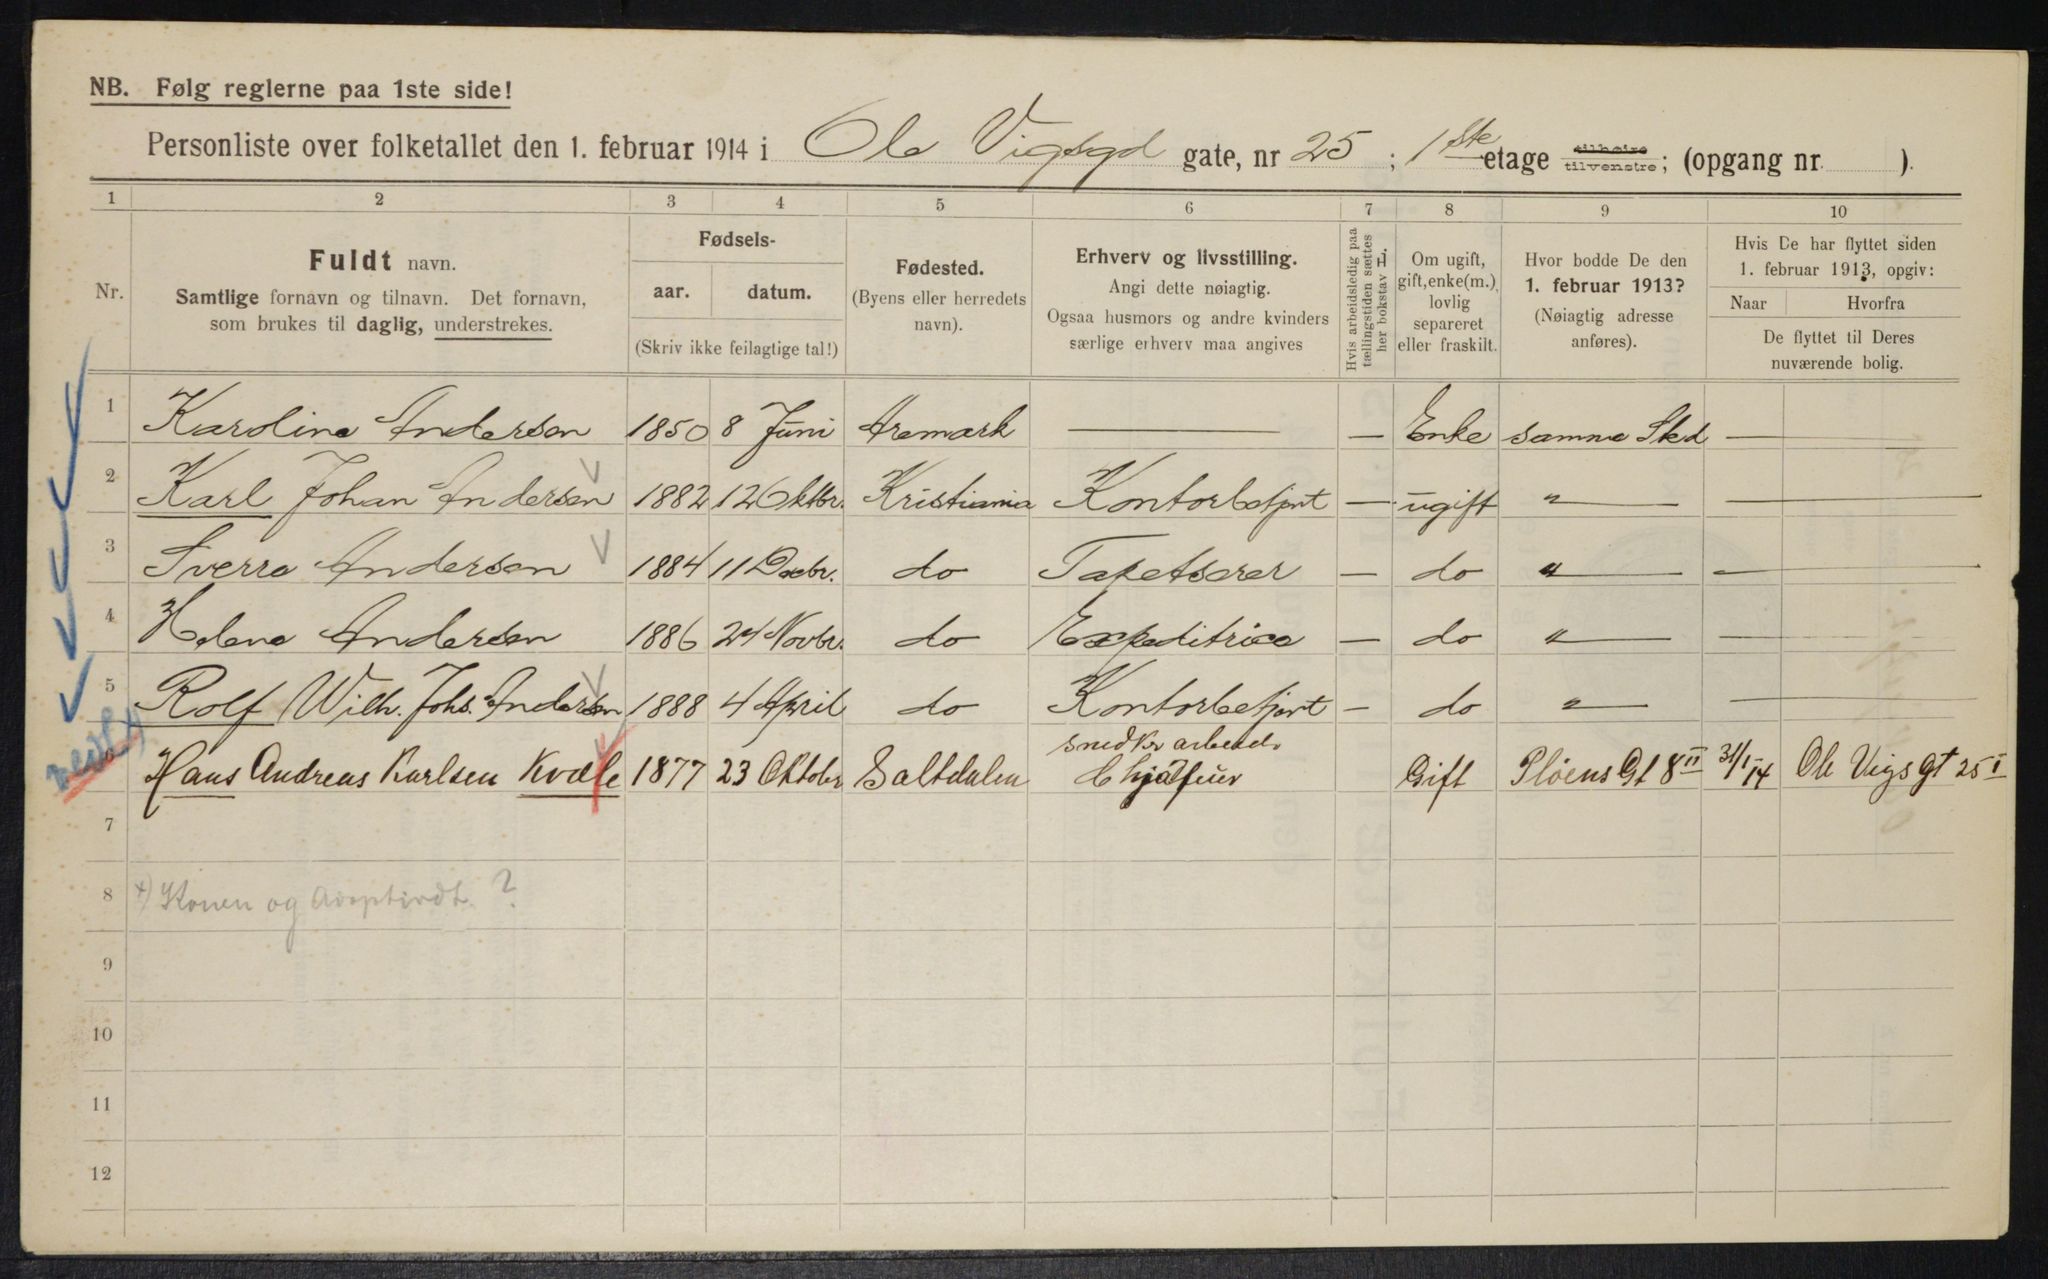 NB. Følg reglerne paa 1ste side!
Personliste over folketallet den 1. februar 1914 i Ole Vigsgd gate, nr 25 ; 1ste etage tilhøire tilvenstre; (opgang nr. ).
1 2 3 4 5 6 7 8 9 10
Nr.
Fuldt navn.
Samtlige fornavn og tilnavn. Det fornavn,
som brukes til daglig, understrekes.
Fødsels-
aar. datum.
(Skriv ikke feilagtige tal!)
Fødested.
(Byens eller herredets
navn).
Erhverv og livsstilling.
Angi dette nøiagtig.
Ogsaa husmors og andre kvinders
særlige erhverv maa angives
Hvis arbeidsledig paa
tællingstiden sættes
her bokstav L.
Om ugift,
gift, enke(m.),
lovlig
separeret
eller fraskilt.
Hvor bodde De den
1. februar 1913?
(Nøiagtig adresse
anføres).
Hvis De har flyttet siden
1. februar 1913, opgiv:
Naar Hvorfra
De flyttet til Deres
nuværende bolig.
1 Karoline Andersen 1850 8 Juni Aremark — — Enke samme Sted —
2 Karl Johan Andersen 1882 12 Oktbr. Kristiania Kontorbetjent — ugift " —
3 Sverre Andersen 1884 11 Decbr. do Tapetserer — do " —
4 Helene Andersen 1886 24 Novbr. do Expeditrice — do " —
5 Rolf Wilh. Johs. Andersen 1888 4 April do Kontorbetjent — do " —
snedker arbeid.
Hans Andreas Karlsen Kvæle 1877 23 Oktober Saltdalen Chjaffeur Gift Pløens Gt 8 II 31/1 14 Ole Vigs gt 25 I
7
8 x) Konen og Adoptivdt. ?
9
10
11
12